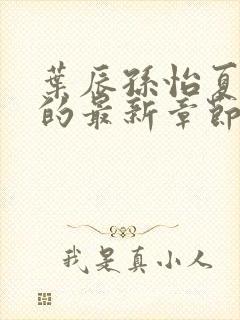 葉辰孫怡夏
的最新章節
我是真小人